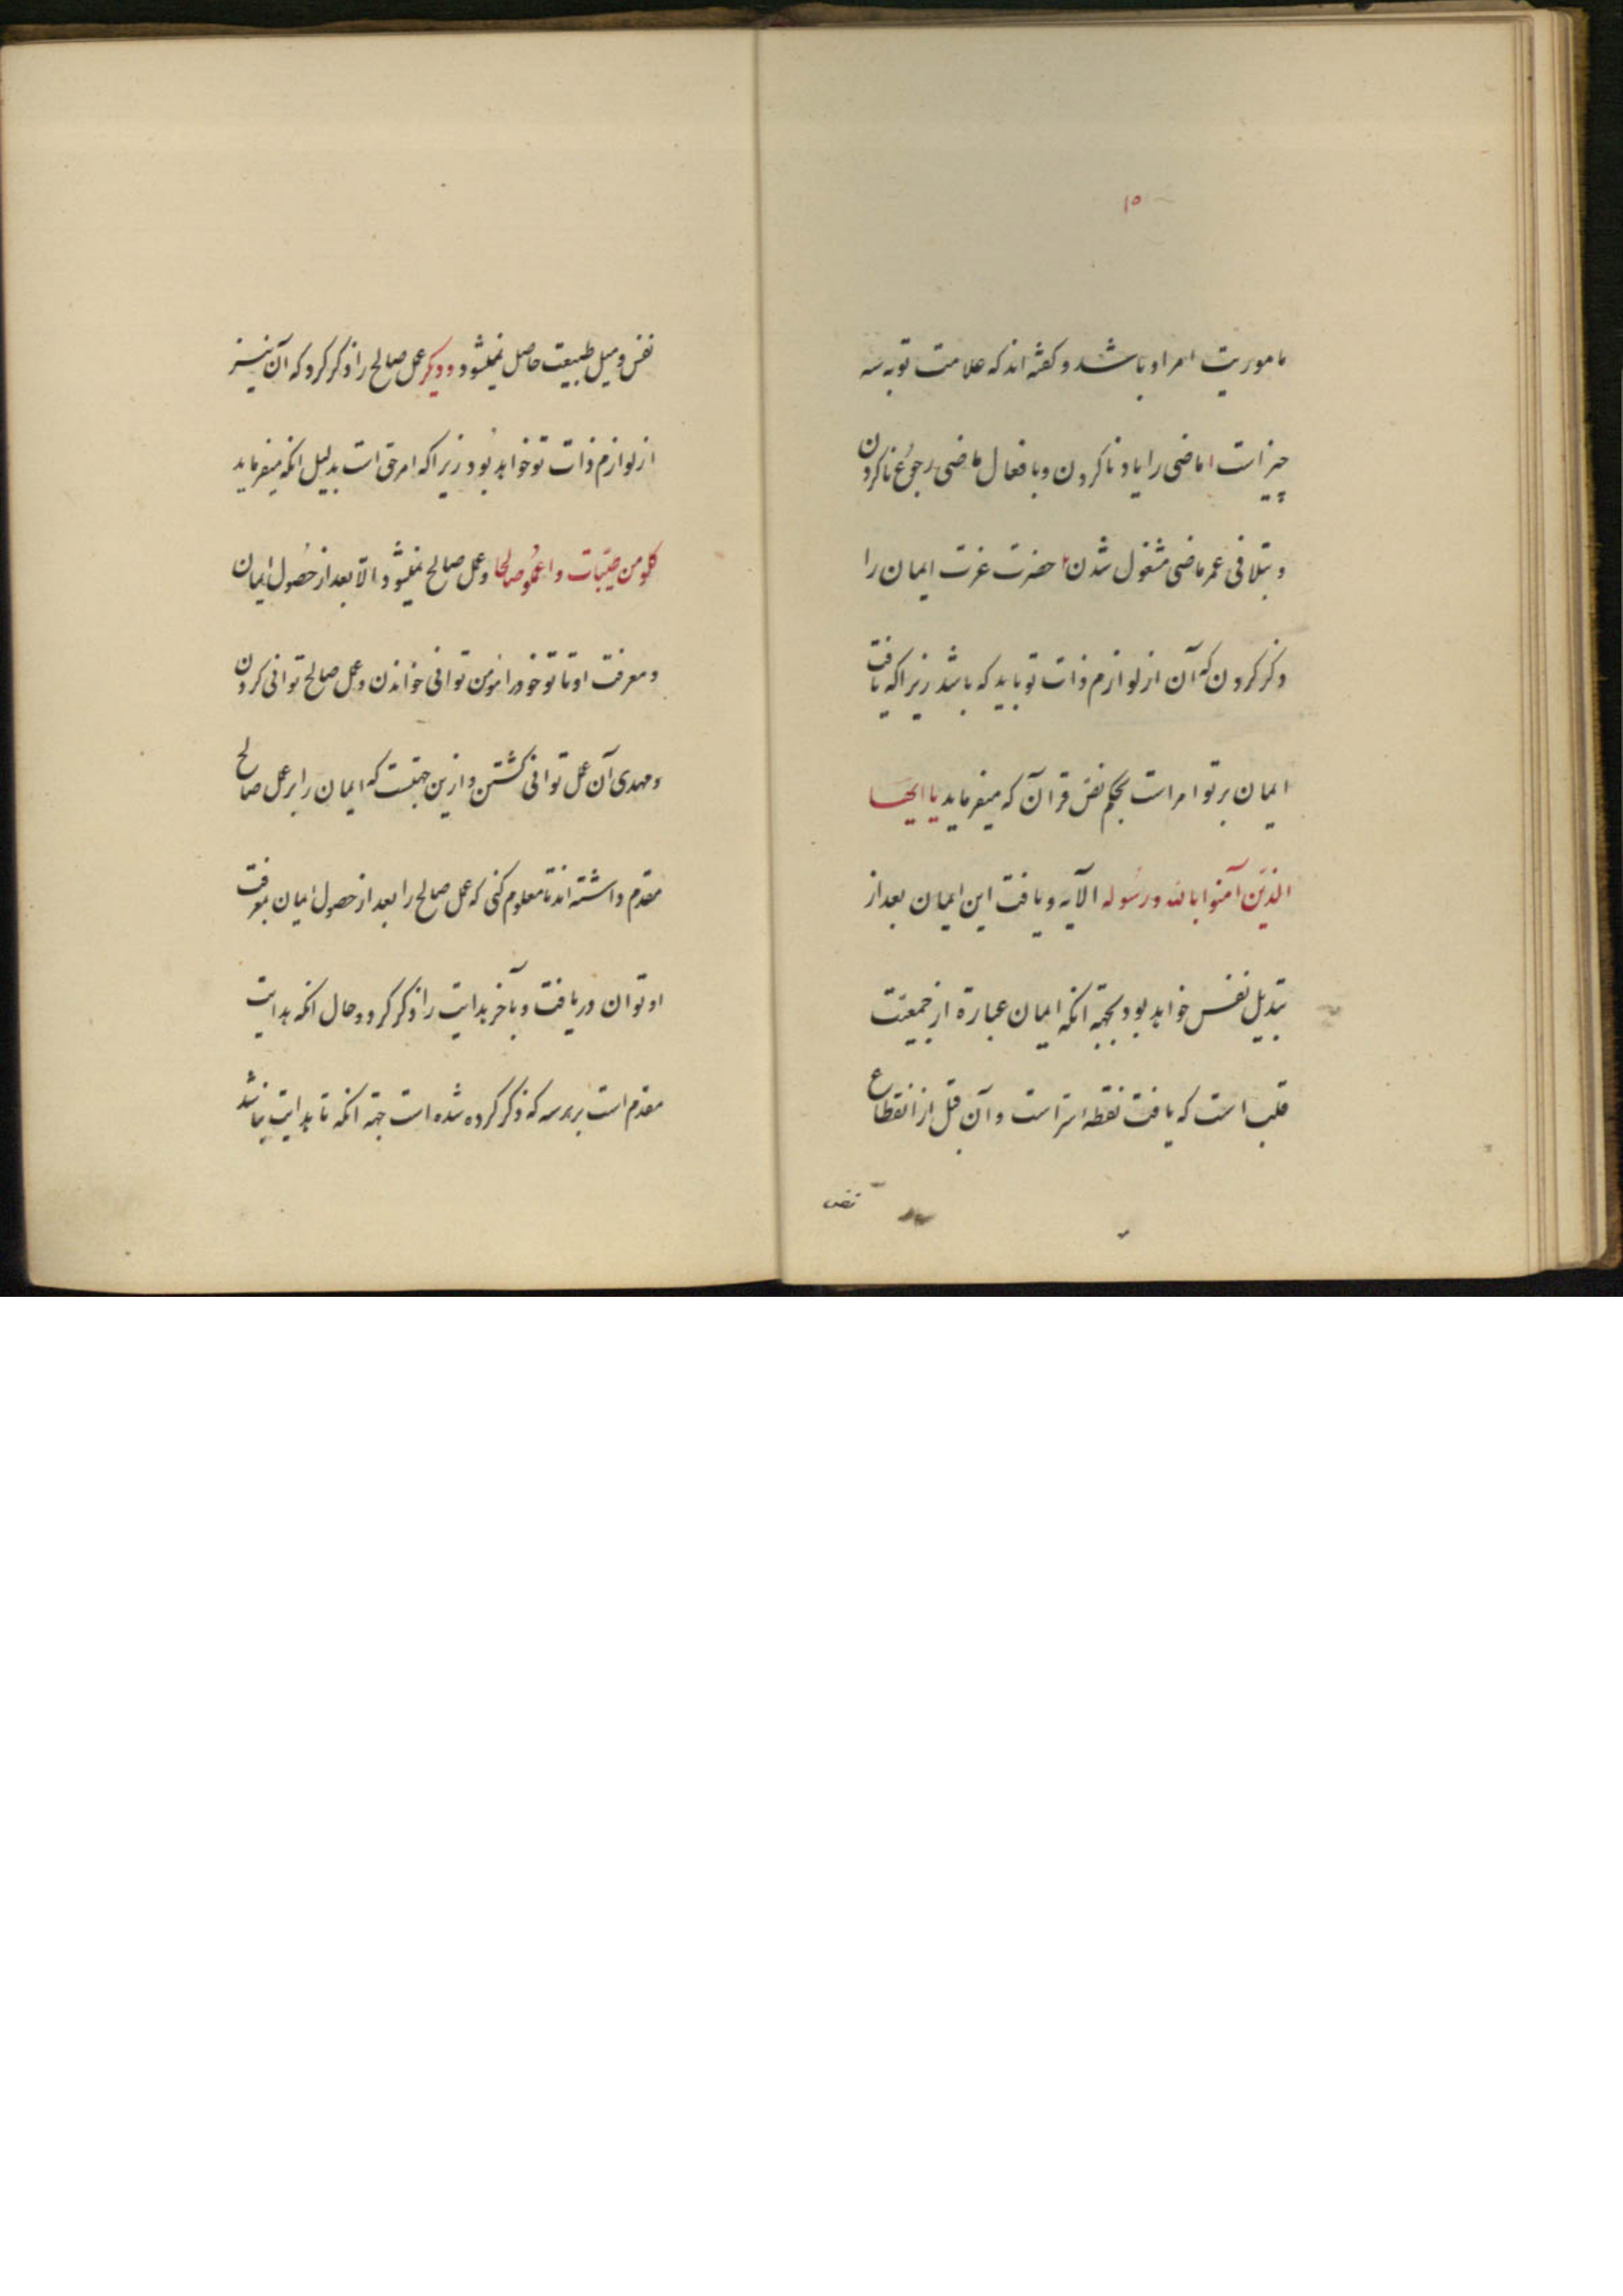 ۱۵
ماموریت امر او باشد و کفته‌اند که علامت توبه سه
چیز است ماضی را یاد ناکردن و بافعال ماضی رجوع ناکردن
و بتلافی عمر ماضی مشغول شدن حضرت عزت ایمان را
ذکر کردن که آن از لوازم ذات تو باید که باشد زیرا که یافت
ایمان بر تو امر است بحکم نص قرآن که میفرماید یا ایها
الذین آمنوا بالله و رسوله الآیه و یافت این ایمان بعد از
تبدیل نفس خواهد بود بجهة آنکه ایمان عبارة از جمعیت
قلب است که یافت نقطه سرّ است و آن قبل از انقطاع
نفس
نفس و میل طبیعت حاصل نمیشود و دیکر عمل صالح را ذکر کرد که آن نیز
از لوازم ذات تو خواهد بود زیرا که امر حق است بدلیل انکه میفرماید
کلو من طیبات و اعملو صالحا و عمل صالح نمیشود الّا بعد از حصول ایمان
و معرفت او تا تو خود را مؤمن توانی خواندن و عمل صالح توانی کردن
و مهدی آن عمل توانی کشتن و ازین جهتست که ایمان را بر عمل صالح
مقدم داشته‌اند تا معلوم کنی که عمل صالح را بعد از حصول ایمان بمعرفت
او توان دریافت و بآخر هدایت را ذکر کرد و حال انکه هدایت
مقدم است بر هر سه که ذکر کرده شده است جهة انکه تا هدایت نباشد